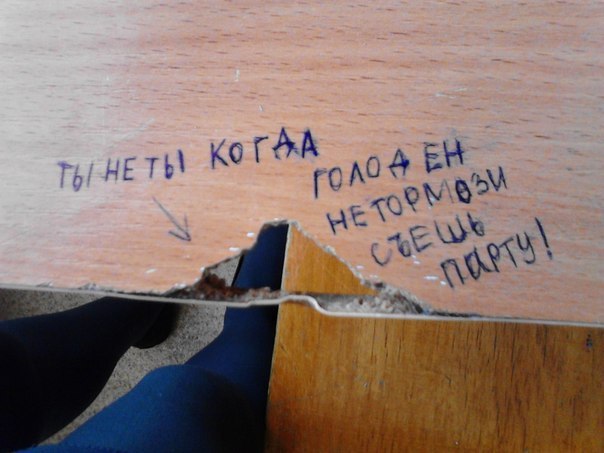 ТЫ НЕ ТЫ КОГДА
ГОЛОДЕН
НЕ ТОРМОЗИ
СЪЕШЬ
ПАРТУ!